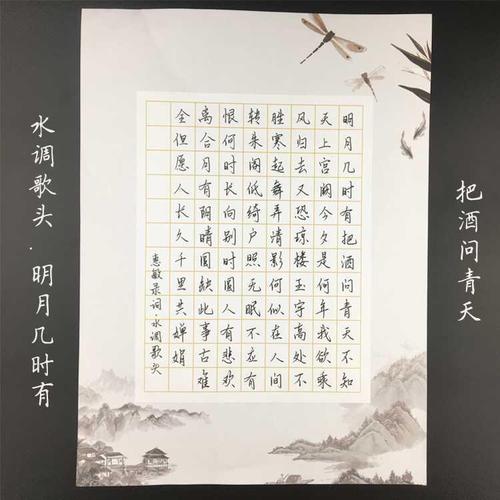 把酒问青天
明月几时有把酒问青天不知
天上宫阙今夕是何年我欲乘
风归去又恐琼楼玉宇高处不
胜寒起舞弄清影何似在人间
转朱阁低绮户照无眠不应有
恨何时长向别时圆人有悲欢
离合月有阴晴圆缺此事古难
全但愿人长久千里共婵娟
惠敏录词·水调歌头
水调歌头.明月几时有